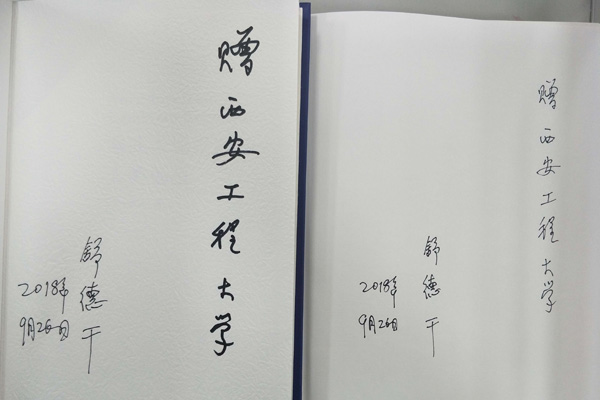 赠西安工程大学
舒德干
2018年
9月26日
赠西安工程大学
舒德干
2018年
9月26日